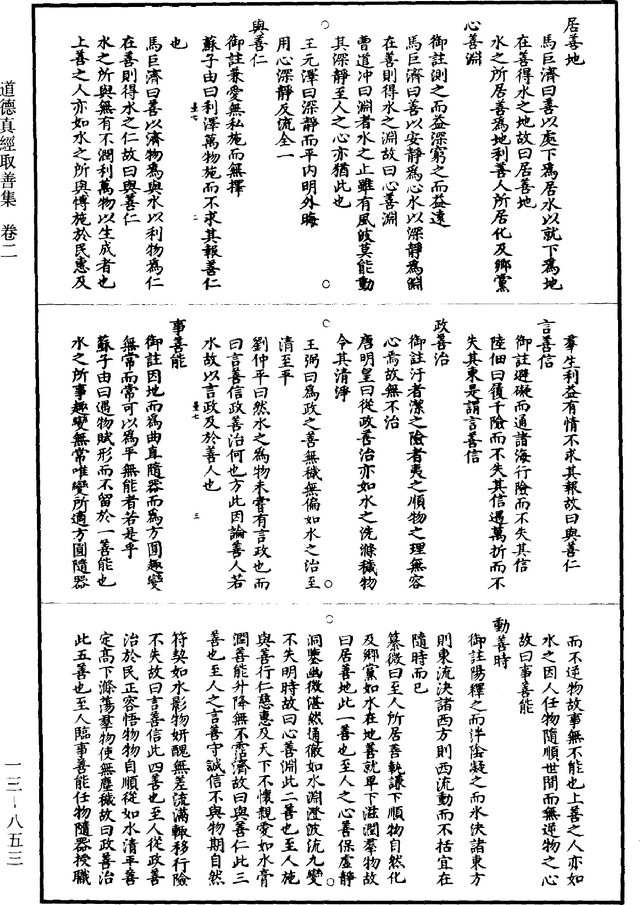 道德真經取善集　卷二
一三－八五三
居善地
馬巨濟曰善以處下為居水以就下為地
在善得水之地故曰居善地
水之所居善為地利善人所居化及鄉黨
心善淵
御註測之而益深窮之而益遠
馬巨濟曰善以安靜為心水以深靜為淵
在善則得水之淵故曰心善淵
曹道冲曰淵者水之止雖有風波莫能動
其深靜至人之心亦猶此也
王元澤曰深靜而平內明外晦
用心深靜反流全一
與善仁
御註兼愛無私施而無擇
蘇子由曰利澤萬物施而不求其報善仁
也
馬巨濟曰善以濟物為與水以利物為仁
在善則得水之仁故曰與善仁
水之所與無有不潤利萬物以生成者也
上善之人亦如水之所與博施於民惠及
羣生利益有情不求其報故曰與善仁
言善信
御註避礙而通諸海行險而不失其信
陸佃曰復千險而不失其信遇萬折而不
失其東是謂言善信
政善治
御註汙者潔之險者夷之順物之理無容
心焉故無不治
唐明皇曰從政善治亦如水之洗滌穢物
令其清淨
王弼曰為政之善無穢無偏如水之治至
清至平
劉仲平曰然水之為物未嘗有言政也而
曰言善信政善治何也方此因論善人若
水故以言政及於善人也
事善能
御註因地而為曲直隨器而為方圓趣變
無常而常可以為平無能者若是乎
蘇子由曰遇物賦形而不留於一善能也
水之所事趣變無常唯變所適方圓隨器
而不逆物故事無不能也上善之人亦如
水之因人任物隨順世間而無逆物之心
故曰事善能
動善時
御註陽釋之而泮陰凝之而冰決諸東方
則東流決諸西方則西流動而不括宜在
隨時而已
纂微曰至人所居善執謙下順物自然化
及鄉黨如水在地善就卑下滋潤羣物故
曰居善地此一善也至人之心善保虛靜
洞鑒幽微湛然通徹如水淵澄波流九變
不失明時故曰心善淵此二善也至人施
與善行仁慈惠及天下不懷親愛如水膏
潤善能升降無不霑濟故曰與善仁此三
善也至人之言善守誠信不與物期自然
符契如水影物妍醜無差流滿輒移行險
不失故曰言善信此四善也至人從政善
治於民正容悟物物自順從如水清平善
定高下滌蕩羣物使無塵穢故曰政善治
此五善也至人臨事善能任物隨器授職